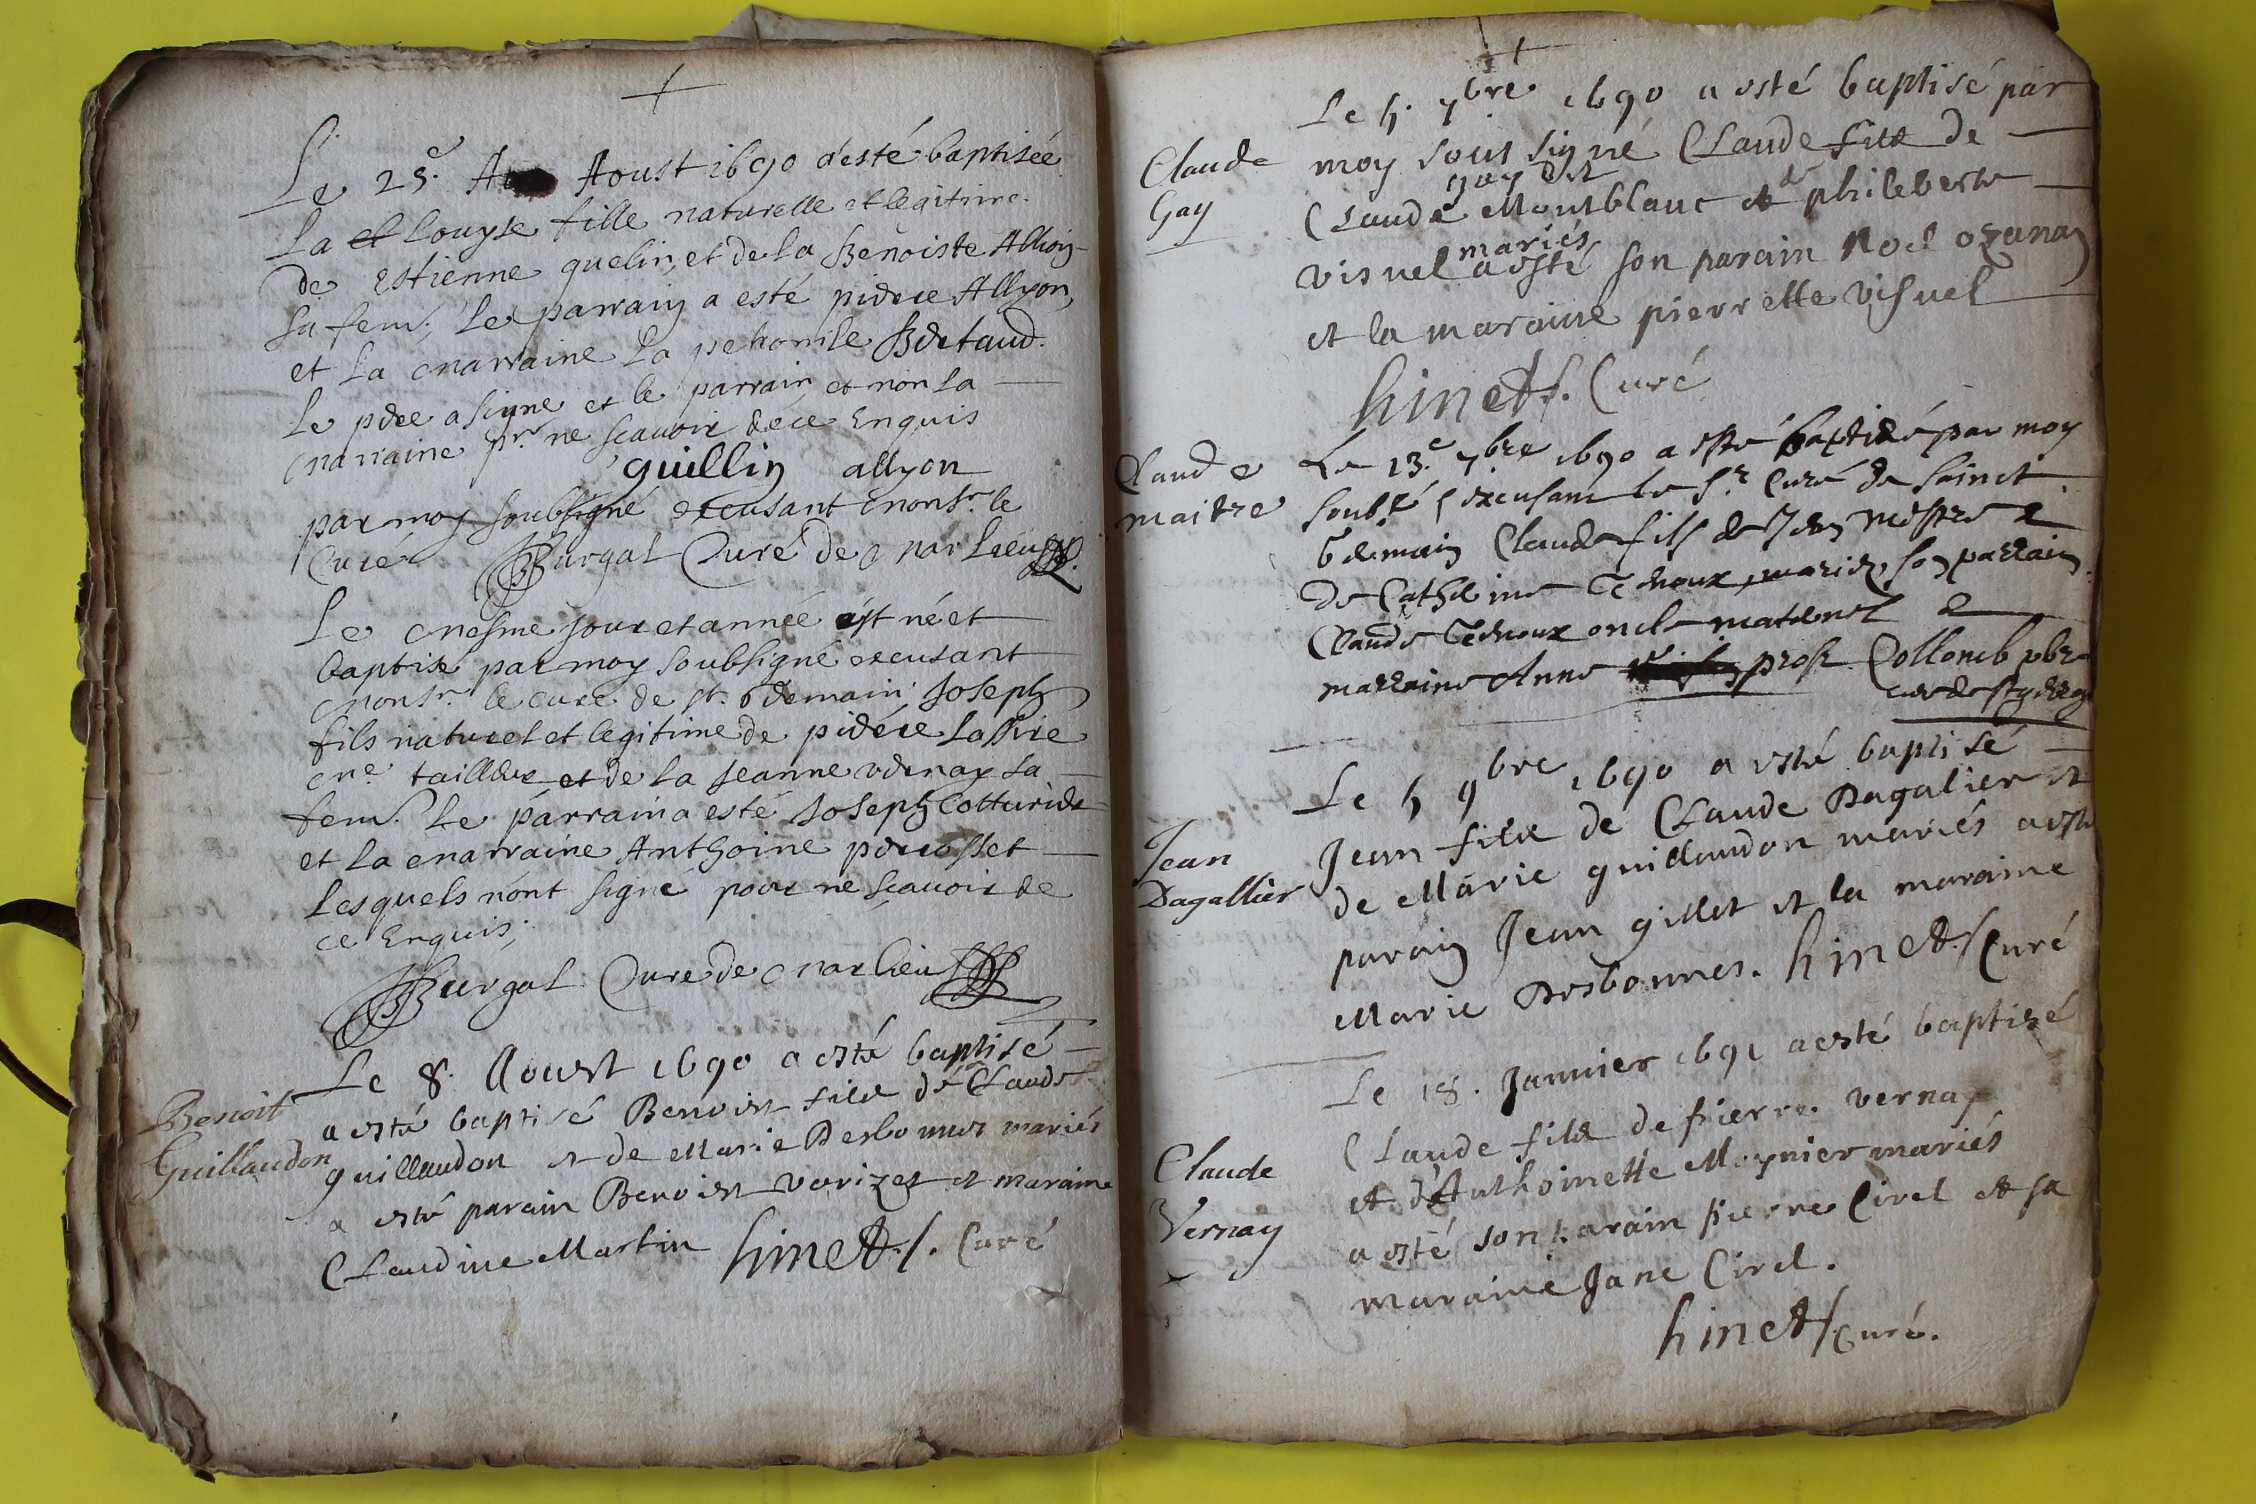 Le 25.e Aoust 1690 a esté baptisée
La Louyse fille naturelle et legitime
de Estienne quelin et de La Benoiste Allion
sa fem. Le parrain a esté pierre Allyon,
et La marraine La petronile Bertaud.
Le pere a signe et le parrain et non La
marraine pr. ne scavoir de ce Enquis
guillin allyon
par moy soubsigné excusant monsr. le
Curé Burgat Curé de marlieu
Le mesme jour et année est né et
baptisé par moy soubsigné excusant
monsr. le curé de st. Germain Joseph
fils naturel et legitime de pierre
me. tailleur et de la Jeanne vernay sa
fem. Le parrain a esté Joseph
et La marraine Anthoine perrosset
Lesquels n'ont signé pour ne sçavoir de
ce Enquis;
Burgat Curé de marlieu
Benoit
Guillaudon
Le 8. Aoust 1690 a esté baptisé
a esté baptisé Benoist filz de Claude
guillaudon et de Marie Desbonnes mariés
a esté parain Benoist vorizet et maraine
Claudine Martin hinet. Curé
Claude
Gay
Le 5. 7bre 1690 a esté baptisé par
moy sous signé Claude filz de
gay dit
Claude Montblanc et de philiberte
mariés
visuel a esté son parain Noel ozanan
et la maraine pierrette visuel
hinet. Curé
Claude
maitre
Le 13.e 7bre 1690 a esté baptisé par moy
soubné excusant le sr. Curé de sainct
Germain Claude fils de Jean mestre et
de Catherine Ternoux mariez, son parrain
Claude Ternoux oncle maternel et
marraine Anne prost Collomb pbre
Jean
Dagallier
Le 5 9bre 1690 a esté baptisé
Jean filz de Claude Dagalier et
de Marie guillaudon mariés a esté
parain Jean gillet et la maraine
Marie Desbonnes. hinet. Curé
Claude
Vernay
Le 18. Janvier 1691 a esté baptizé
Claude filz de pierre vernay
et d'Anthoinette Moynier mariés
a esté son parain pierre Cirel et sa
maraine Jane Cirel.
hinet Curé.